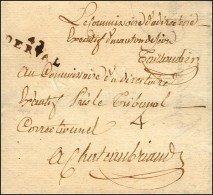 Le Commissaire du directoire
Executif du canton de
DERVAL
Au Commissaire du directoire
Executif près le Tribunal
Correctionnel
4
a Chateaubriand